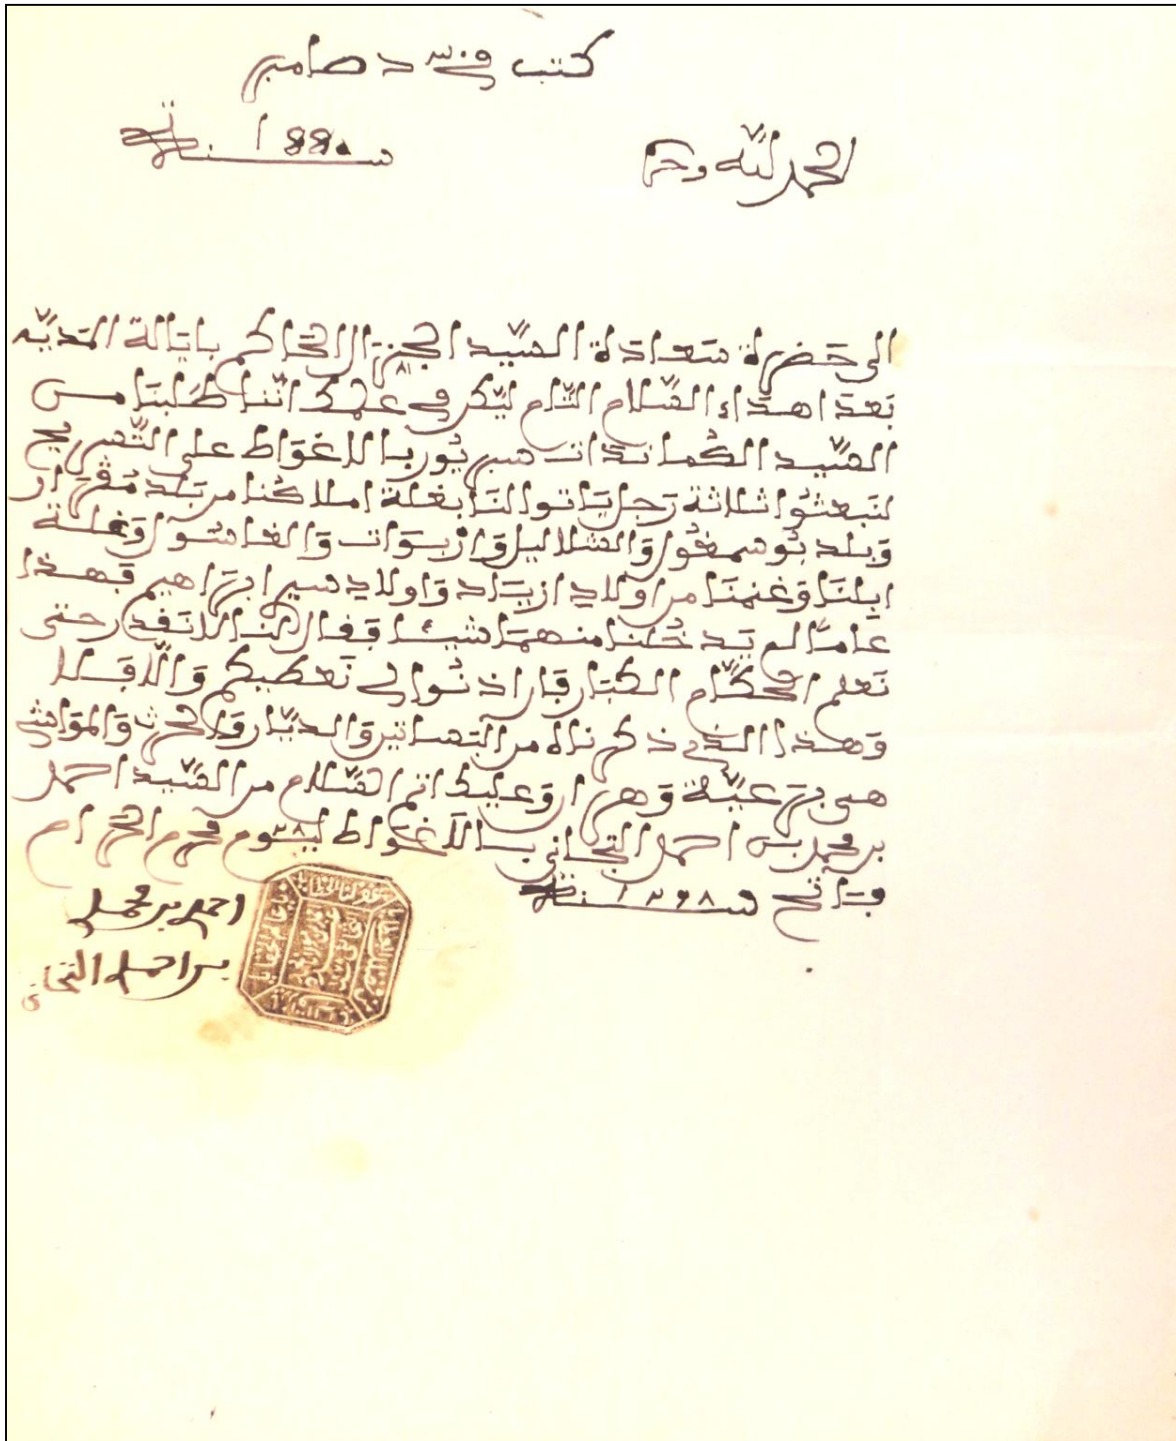 كتب في ٣٠ دصامبر
سنة 1880
الحمد لله وحده
الى حَضرة سَعادَة السّيد الجنرَال الحَاكم بايَالة المَديّه
بَعدَ اهدَاء السّلام التّام ليَكن في علمك انّنا طلَبنَا من
السّيد الكُماندَات سبيريُور بالاغوَاط على التّسريح
لنَبعثوُا ثلاثة رَجل يَاتوا لنَا بغلة املاكُنا من بَلد مُڤرَار
وَبلد بُوسمغُول وَالشلاليل وَارْبوَات وَالغاسُول وَغلة
ابلنَا وَغنمنَا من اولَاد ازيَاد وَاولاد سيد ابرَاهيم فَهذا
عَاماً لم يَدخُلنا منهمَا شيئا فَقال لنا لا نَقدر حتى
نَعلم الحكّام الكبَار فَان اذنُوا لي نَعطيكم وَالّا فَلا
وَهذا الذي ذكرناه من البَساتين وَالديَار وَالحرث وَالموَاشي
هي برَعيّة وَهرَان وَعليك اتم السّلام من السّيد احمد
بن محمد بن احمد التجاني بالاغوَاط ليَوم ٢٨ محرم الحرَام
فاتح سنة ١٢٩٨
احمد بن محمد
بن احمد التجاني